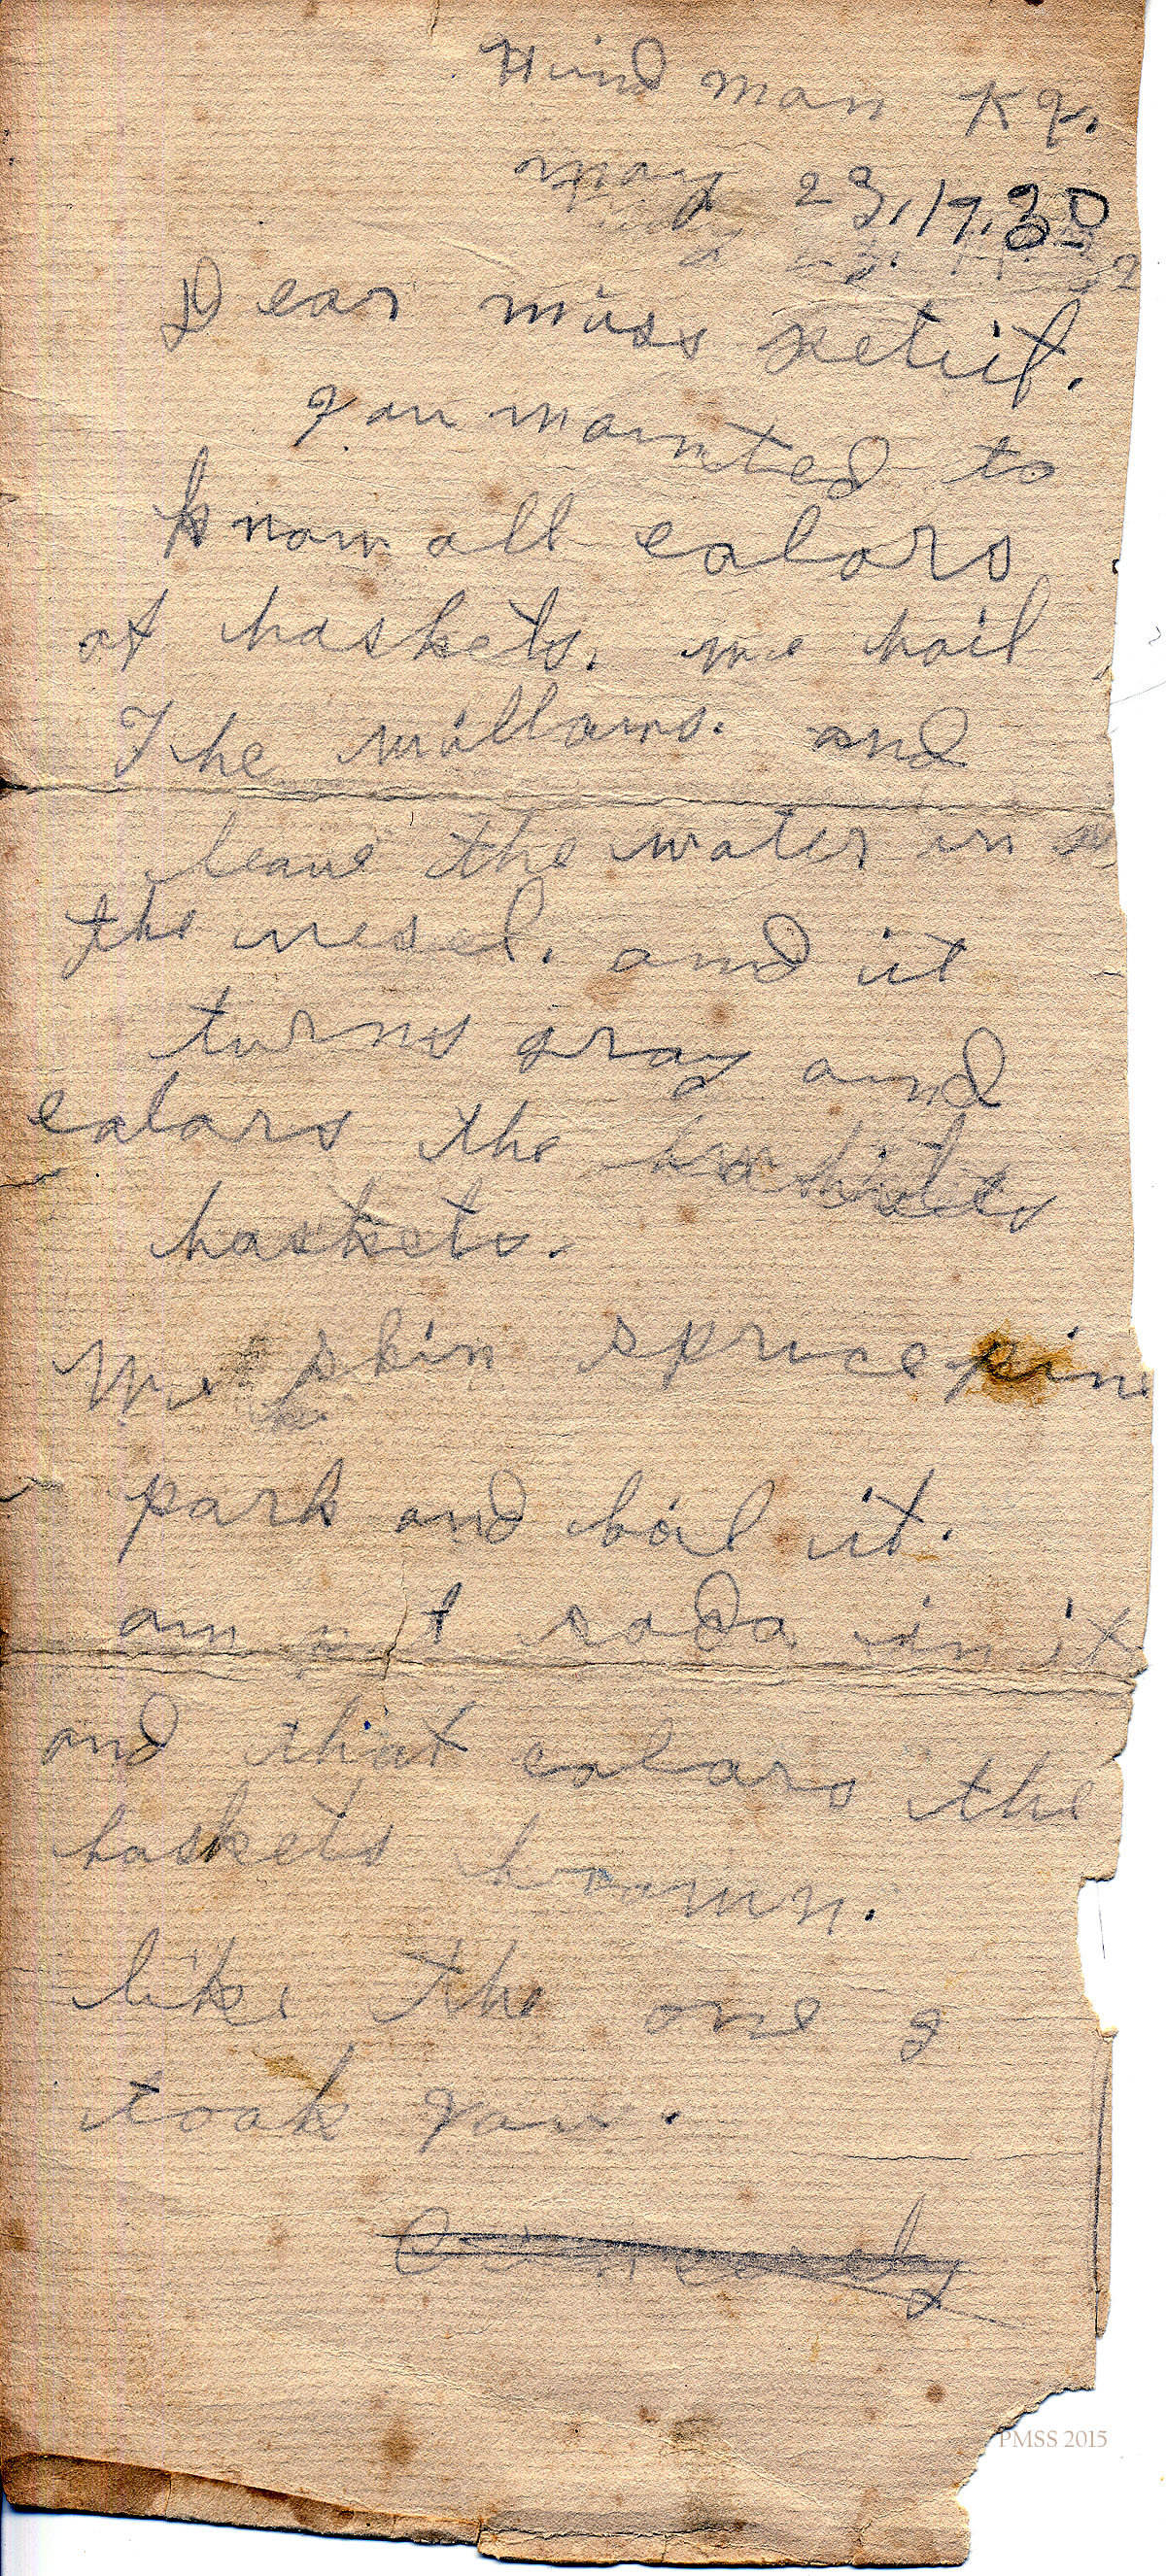 Hindman Ky.
May 23, 19.30
Dear miss petit.
you wanted to
know all colors
of baskets. we boil
The willows. and
leave the water in
the vesel. and it
turns gray and
colors the baskets
baskets.
We skin spruce pine
park and boil it.
an put soda in it
and that colors the
baskets brown.
like the one g
took you.
Sincerely
PMSS 2015